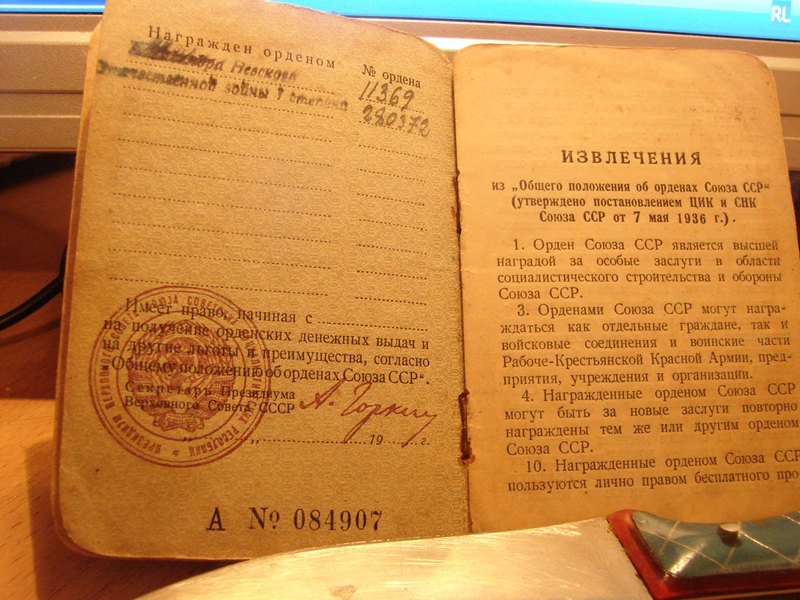 RL
Награжден орденом
№ ордена
Александра Невского
11369
Отечественной войны I степени
280372
Имеет право, начиная с
на получение орденских денежных выдач и
на другие льготы и преимущества, согласно
„Общему положению об орденах Союза ССР“.
Секретарь Президиума
Верховного Совета СССР
А. Горкин
„ “ 19 г.
ПРЕЗИДИУМ ВЕРХОВНОГО СОВЕТА СОЮЗА СОВЕТСКИХ СОЦИАЛИСТИЧЕСКИХ РЕСПУБЛИК
А № 084907
ИЗВЛЕЧЕНИЯ
из „Общего положения об орденах Союза ССР“
(утверждено постановлением ЦИК и СНК
Союза ССР от 7 мая 1936 г.).
1. Орден Союза ССР является высшей
наградой за особые заслуги в области
социалистического строительства и обороны
Союза ССР.
3. Орденами Союза ССР могут награ-
ждаться как отдельные граждане, так и
войсковые соединения и воинские части
Рабоче-Крестьянской Красной Армии, пред-
приятия, учреждения и организации.
4. Награжденные орденом Союза ССР
могут быть за новые заслуги повторно
награждены тем же или другим орденом
Союза ССР.
10. Награжденные орденом Союза ССР
пользуются лично правом бесплатного про